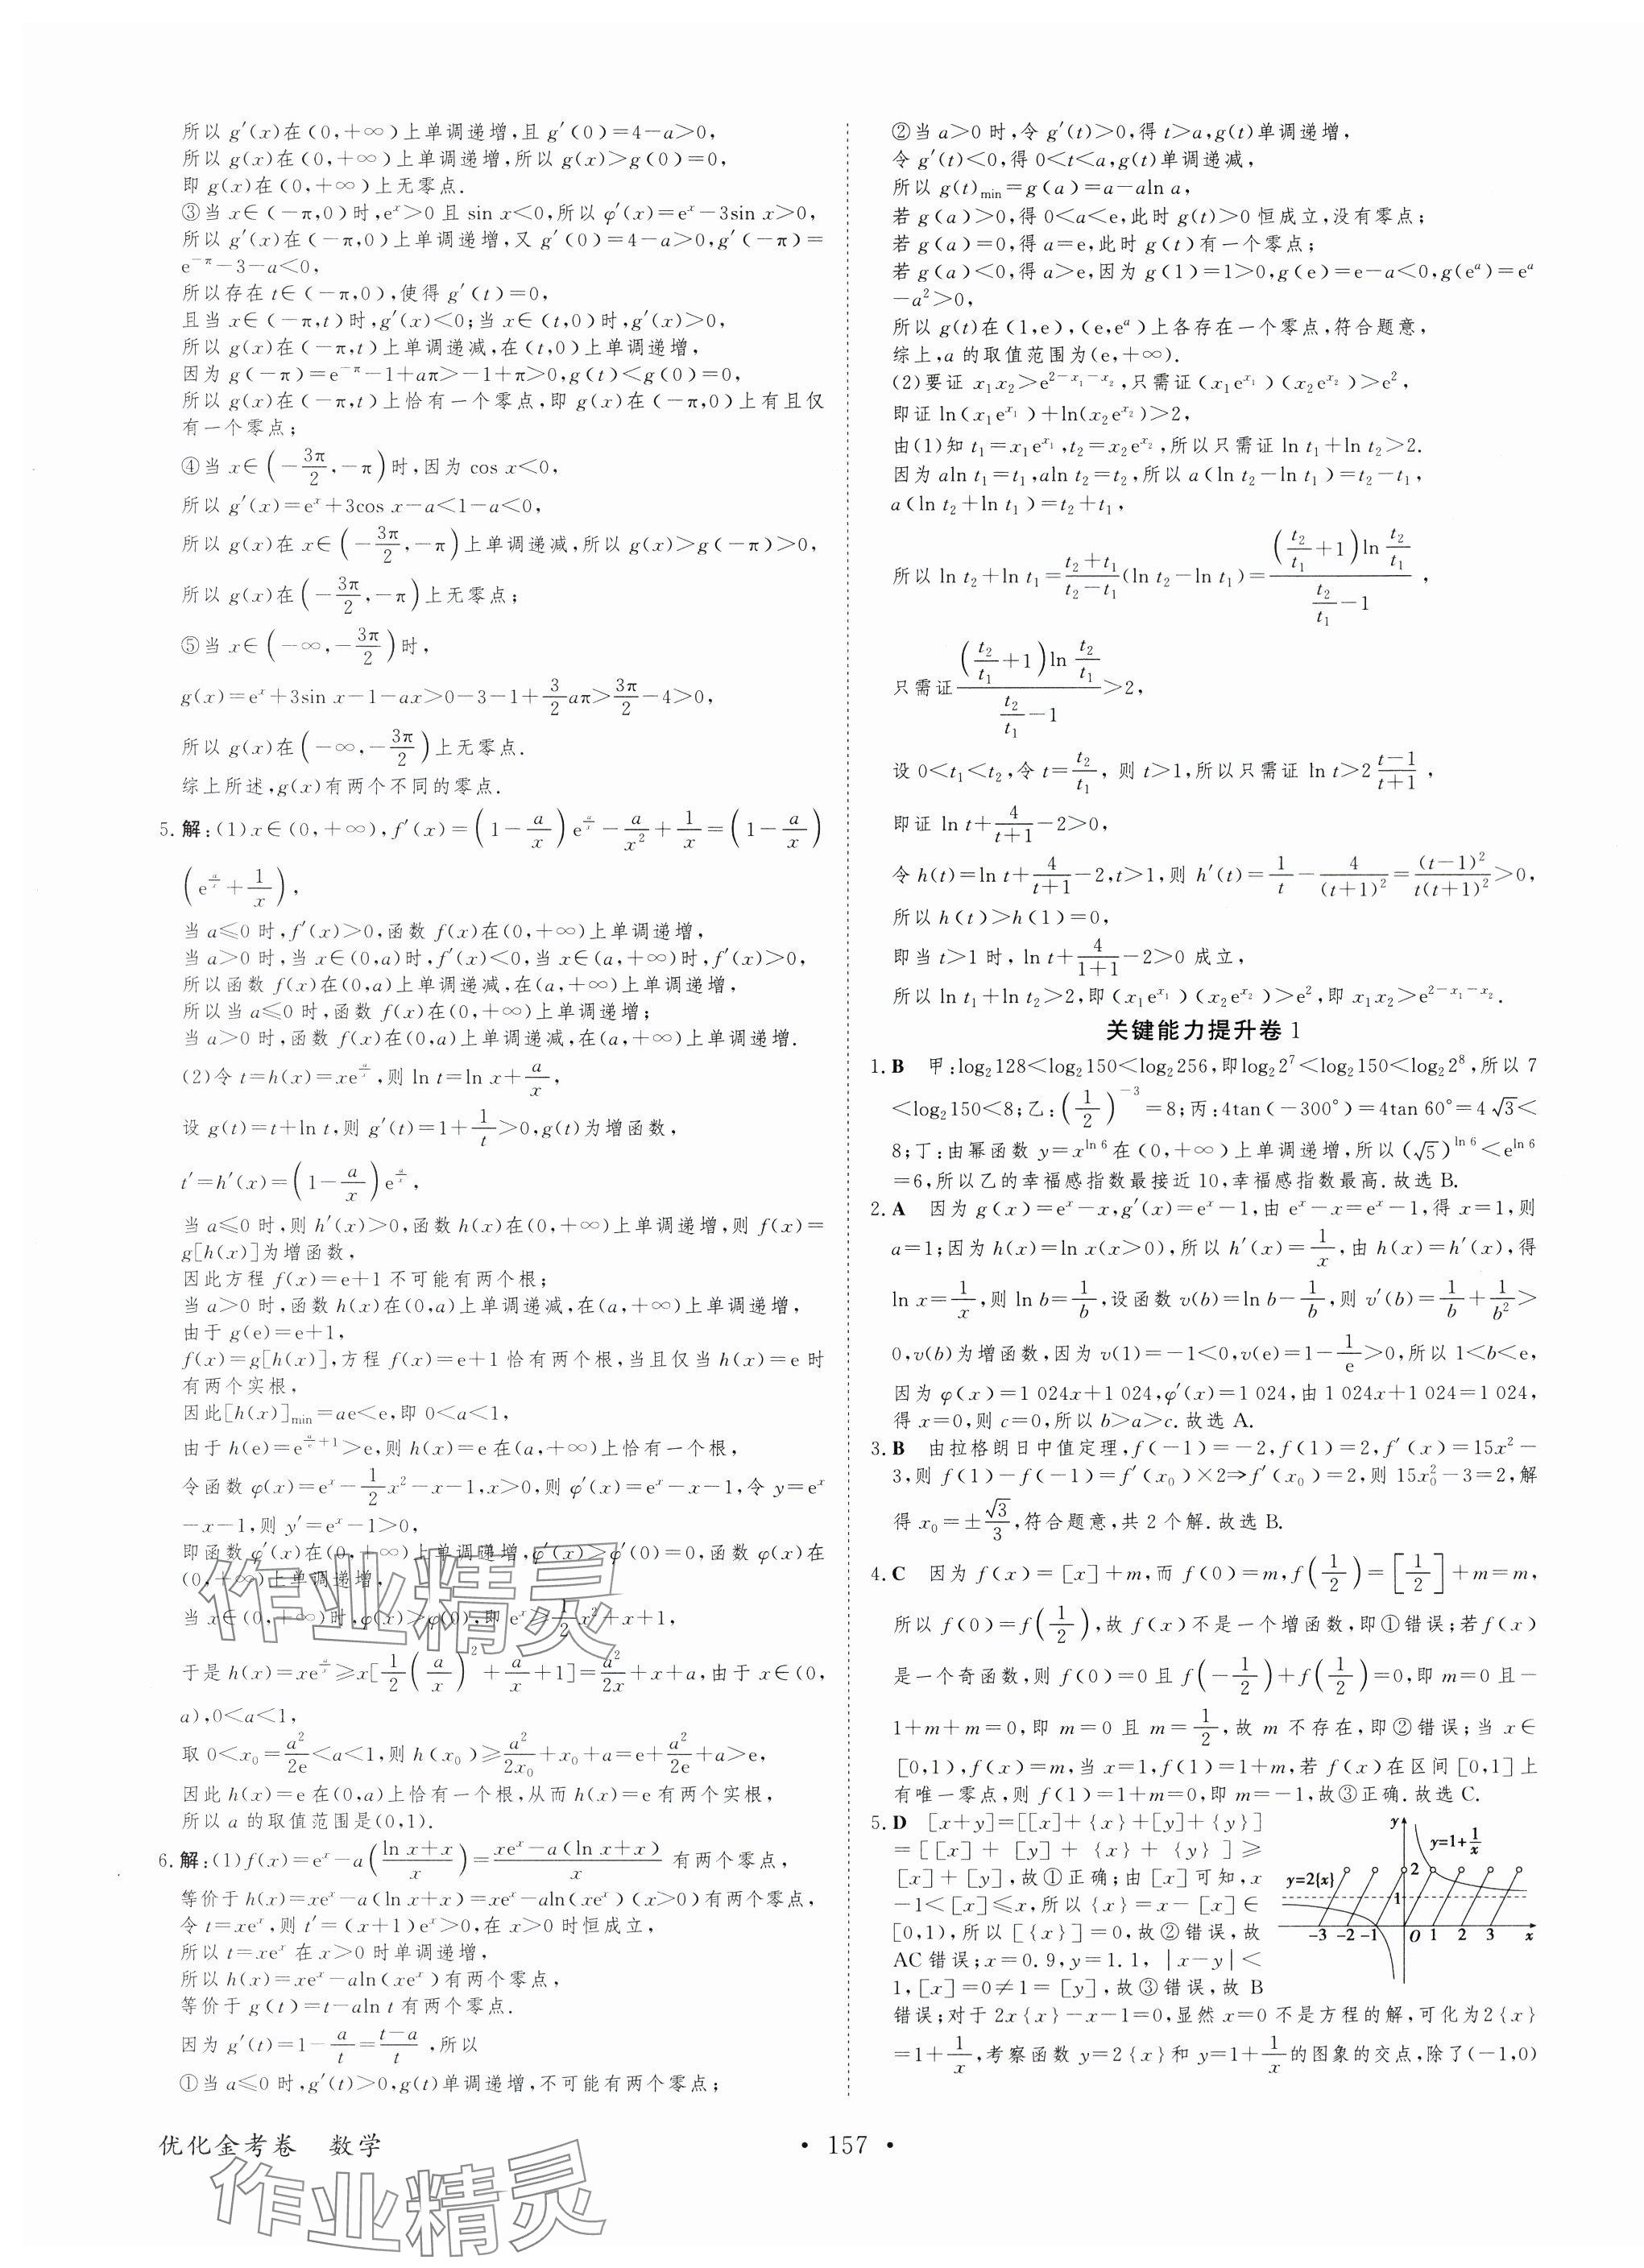 所以 g′(x)在(0,+∞)上单调递增,且 g′(0)=4-a>0,
所以 g(x)在(0,+∞)上单调递增,所以 g(x)>g(0)=0,
即 g(x)在(0,+∞)上无零点.
③当 x∈(-π,0)时,eˣ>0 且 sin x<0,所以 φ′(x)=eˣ-3sin x>0,
所以 g′(x)在(-π,0)上单调递增,又 g′(0)=4-a>0,g′(-π)=
e^{-π}-3-a<0,
所以存在 t∈(-π,0),使得 g′(t)=0,
且当 x∈(-π,t)时,g′(x)<0;当 x∈(t,0)时,g′(x)>0,
所以 g(x)在(-π,t)上单调递减,在(t,0)上单调递增,
因为 g(-π)=e^{-π}-1+aπ>-1+π>0,g(t)<g(0)=0,
所以 g(x)在(-π,t)上恰有一个零点,即 g(x)在(-π,0)上有且仅
有一个零点;
④当 x∈(-3π/2,-π)时,因为 cos x<0,
所以 g′(x)=eˣ+3cos x-a<1-a<0,
所以 g(x)在 x∈(-3π/2,-π)上单调递减,所以 g(x)>g(-π)>0,
所以 g(x)在(-3π/2,-π)上无零点;
⑤当 x∈(-∞,-3π/2)时,
g(x)=eˣ+3sin x-1-ax>0-3-1+3/2aπ>3π/2-4>0,
所以 g(x)在(-∞,-3π/2)上无零点.
综上所述,g(x)有两个不同的零点.
5.解:(1)x∈(0,+∞),f′(x)=(1-a/x)e^{a/x}-a/x²+1/x=(1-a/x)
(e^{a/x}+1/x),
当 a≤0 时,f′(x)>0,函数 f(x)在(0,+∞)上单调递增,
当 a>0 时,当 x∈(0,a)时,f′(x)<0,当 x∈(a,+∞)时,f′(x)>0,
所以函数 f(x)在(0,a)上单调递减,在(a,+∞)上单调递增,
所以当 a≤0 时,函数 f(x)在(0,+∞)上单调递增;
当 a>0 时,函数 f(x)在(0,a)上单调递减,在(a,+∞)上单调递增.
(2)令 t=h(x)=xe^{a/x},则 ln t=ln x+a/x,
设 g(t)=t+ln t,则 g′(t)=1+1/t>0,g(t)为增函数,
t′=h′(x)=(1-a/x)e^{a/x},
当 a≤0 时,则 h′(x)>0,函数 h(x)在(0,+∞)上单调递增,则 f(x)=
g[h(x)]为增函数,
因此方程 f(x)=e+1 不可能有两个根;
当 a>0 时,函数 h(x)在(0,a)上单调递减,在(a,+∞)上单调递增,
由于 g(e)=e+1,
f(x)=g[h(x)],方程 f(x)=e+1 恰有两个根,当且仅当 h(x)=e 时
有两个实根,
因此[h(x)]min=ae<e,即 0<a<1,
由于 h(e)=e^{a/e+1}>e,则 h(x)=e 在(a,+∞)上恰有一个根,
令函数 φ(x)=eˣ-1/2x²-x-1,x>0,则 φ′(x)=eˣ-x-1,令 y=eˣ
-x-1,则 y′=eˣ-1>0,
即函数 φ′(x)在(0,+∞)上单调递增,φ′(x)>φ′(0)=0,函数 φ(x)在
(0,+∞)上单调递增,
当 x∈(0,+∞)时,φ(x)>φ(0),即 eˣ>1/2x²+x+1,
于是 h(x)=xe^{a/x}≥x[1/2(a/x)²+a/x+1]=a²/2x+x+a,由于 x∈(0,
a),0<a<1,
取 0<x₀=a²/2e<a<1,则 h(x₀)≥a²/2x₀+x₀+a=e+a²/2e+a>e,
因此 h(x)=e 在(0,a)上恰有一个根,从而 h(x)=e 有两个实根,
所以 a 的取值范围是(0,1).
6.解:(1)f(x)=eˣ-a((ln x+x)/x)=(xeˣ-a(ln x+x))/x 有两个零点,
等价于 h(x)=xeˣ-a(ln x+x)=xeˣ-aln(xeˣ)(x>0)有两个零点,
令 t=xeˣ,则 t′=(x+1)eˣ>0,在 x>0 时恒成立,
所以 t=xeˣ 在 x>0 时单调递增,
所以 h(x)=xeˣ-aln(xeˣ)有两个零点,
等价于 g(t)=t-aln t 有两个零点.
因为 g′(t)=1-a/t=(t-a)/t,所以
①当 a≤0 时,g′(t)>0,g(t)单调递增,不可能有两个零点;
②当 a>0 时,令 g′(t)>0,得 t>a,g(t)单调递增,
令 g′(t)<0,得 0<t<a,g(t)单调递减,
所以 g(t)min=g(a)=a-aln a,
若 g(a)>0,得 0<a<e,此时 g(t)>0 恒成立,没有零点;
若 g(a)=0,得 a=e,此时 g(t)有一个零点;
若 g(a)<0,得 a>e,因为 g(1)=1>0,g(e)=e-a<0,g(eᵃ)=eᵃ
-a²>0,
所以 g(t)在(1,e),(e,eᵃ)上各存在一个零点,符合题意,
综上,a 的取值范围为(e,+∞).
(2)要证 x₁x₂>e^{2-x₁-x₂},只需证(x₁e^{x₁})(x₂e^{x₂})>e²,
即证 ln(x₁e^{x₁})+ln(x₂e^{x₂})>2,
由(1)知 t₁=x₁e^{x₁},t₂=x₂e^{x₂},所以只需证 ln t₁+ln t₂>2.
因为 aln t₁=t₁,aln t₂=t₂,所以 a(ln t₂-ln t₁)=t₂-t₁,
a(ln t₂+ln t₁)=t₂+t₁,
所以 ln t₂+ln t₁=(t₂+t₁)/(t₂-t₁)(ln t₂-ln t₁)=((t₂/t₁+1)ln t₂/t₁)/(t₂/t₁-1),
只需证((t₂/t₁+1)ln t₂/t₁)/(t₂/t₁-1)>2,
设 0<t₁<t₂,令 t=t₂/t₁,则 t>1,所以只需证 ln t>2(t-1)/(t+1),
即证 ln t+4/(t+1)-2>0,
令 h(t)=ln t+4/(t+1)-2,t>1,则 h′(t)=1/t-4/(t+1)²=(t-1)²/t(t+1)²>0,
所以 h(t)>h(1)=0,
即当 t>1 时,ln t+4/(1+1)-2>0 成立,
所以 ln t₁+ln t₂>2,即(x₁e^{x₁})(x₂e^{x₂})>e²,即 x₁x₂>e^{2-x₁-x₂}.
关键能力提升卷 1
1. B 甲:log₂128<log₂150<log₂256,即log₂2⁷<log₂150<log₂2⁸,所以 7
<log₂150<8;乙:(1/2)⁻³=8;丙:4tan(-300°)=4tan 60°=4√3<
8;丁:由幂函数 y=x^{ln 6}在(0,+∞)上单调递增,所以(√5)^{ln 6}<e^{ln 6}
=6,所以乙的幸福感指数最接近 10,幸福感指数最高.故选 B.
2. A 因为 g(x)=eˣ-x,g′(x)=eˣ-1,由 eˣ-x=eˣ-1,得 x=1,则
a=1;因为 h(x)=ln x(x>0),所以 h′(x)=1/x,由 h(x)=h′(x),得
ln x=1/x,则 ln b=1/b,设函数 v(b)=ln b-1/b,则 v′(b)=1/b+1/b²>
0,v(b)为增函数,因为 v(1)=-1<0,v(e)=1-1/e>0,所以 1<b<e,
因为 φ(x)=1 024x+1 024,φ′(x)=1 024,由 1 024x+1 024=1 024,
得 x=0,则 c=0,所以 b>a>c.故选 A.
3. B 由拉格朗日中值定理,f(-1)=-2,f(1)=2,f′(x)=15x²-
3,则 f(1)-f(-1)=f′(x₀)×2⇒f′(x₀)=2,则 15x₀²-3=2,解
得 x₀=±√3/3,符合题意,共 2 个解.故选 B.
4. C 因为 f(x)=[x]+m,而 f(0)=m,f(1/2)=[1/2]+m=m,
所以 f(0)=f(1/2),故 f(x)不是一个增函数,即①错误;若 f(x)
是一个奇函数,则 f(0)=0 且 f(-1/2)+f(1/2)=0,即 m=0 且-
1+m+m=0,即 m=0 且 m=1/2,故 m 不存在,即②错误;当 x∈
[0,1),f(x)=m,当 x=1,f(1)=1+m,若 f(x)在区间[0,1]上
有唯一零点,则 f(1)=1+m=0,即 m=-1,故③正确.故选 C.
5. D [x+y]=[[x]+{x}+[y]+{y}]
=[[x]+[y]+{x}+{y}]≥
[x]+[y],故①正确;由[x]可知,x
-1<[x]≤x,所以{x}=x-[x]∈
[0,1),所以[{x}]=0,故②错误,故
AC 错误;x=0.9,y=1.1,|x-y|<
1,[x]=0≠1=[y],故③错误,故 B
y
y=1+1/x
y=2{x}
2
1
-3 -2 -1 O 1 2 3 x
错误;对于 2x{x}-x-1=0,显然 x=0 不是方程的解,可化为2{x}
=1+1/x,考察函数 y=2{x}和 y=1+1/x的图象的交点,除了(-1,0)
优化金考卷 数学
• 157 •
作业精灵
作业精灵